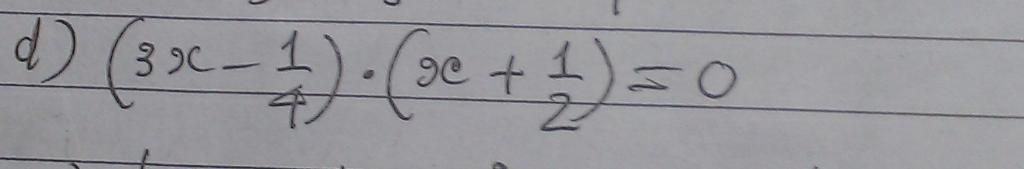 d) (3x - 1/4) · (x + 1/2) = 0